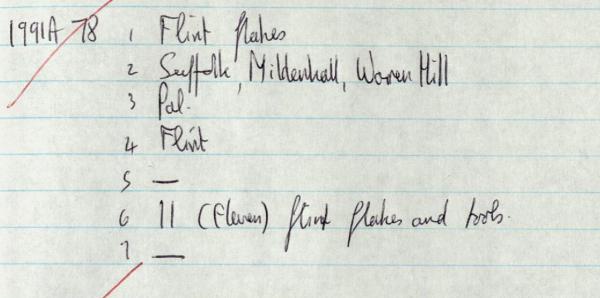 1991A 78 1 Flint flakes
2 Suffolk, Mildenhall, Warren Hill
3 Pal.
4 Flint
5 —
6 11 (Eleven) flint flakes and tools.
7 —